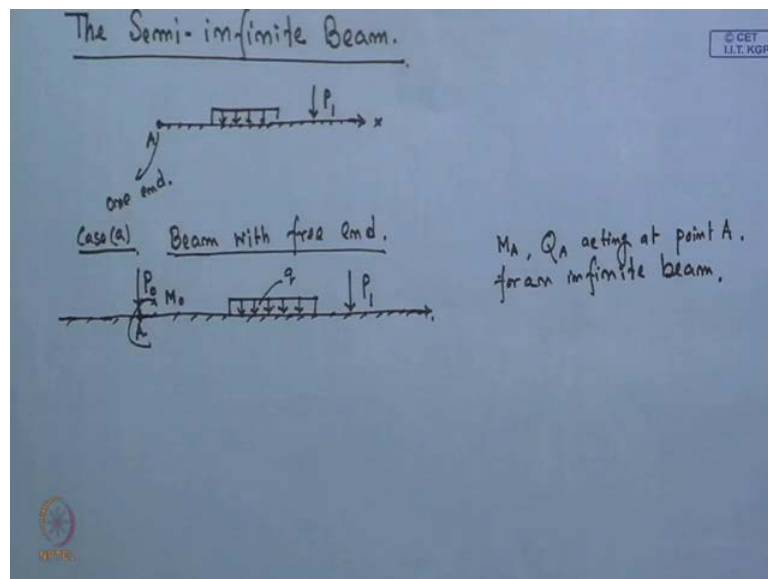 The Semi-infinite Beam.
© CET
I.I.T. KGP
P1
A
x
one end.
Case(a). Beam with free end.
MA, QA acting at point A.
for an infinite beam.
P0
M0
q
P1
A
NPTEL